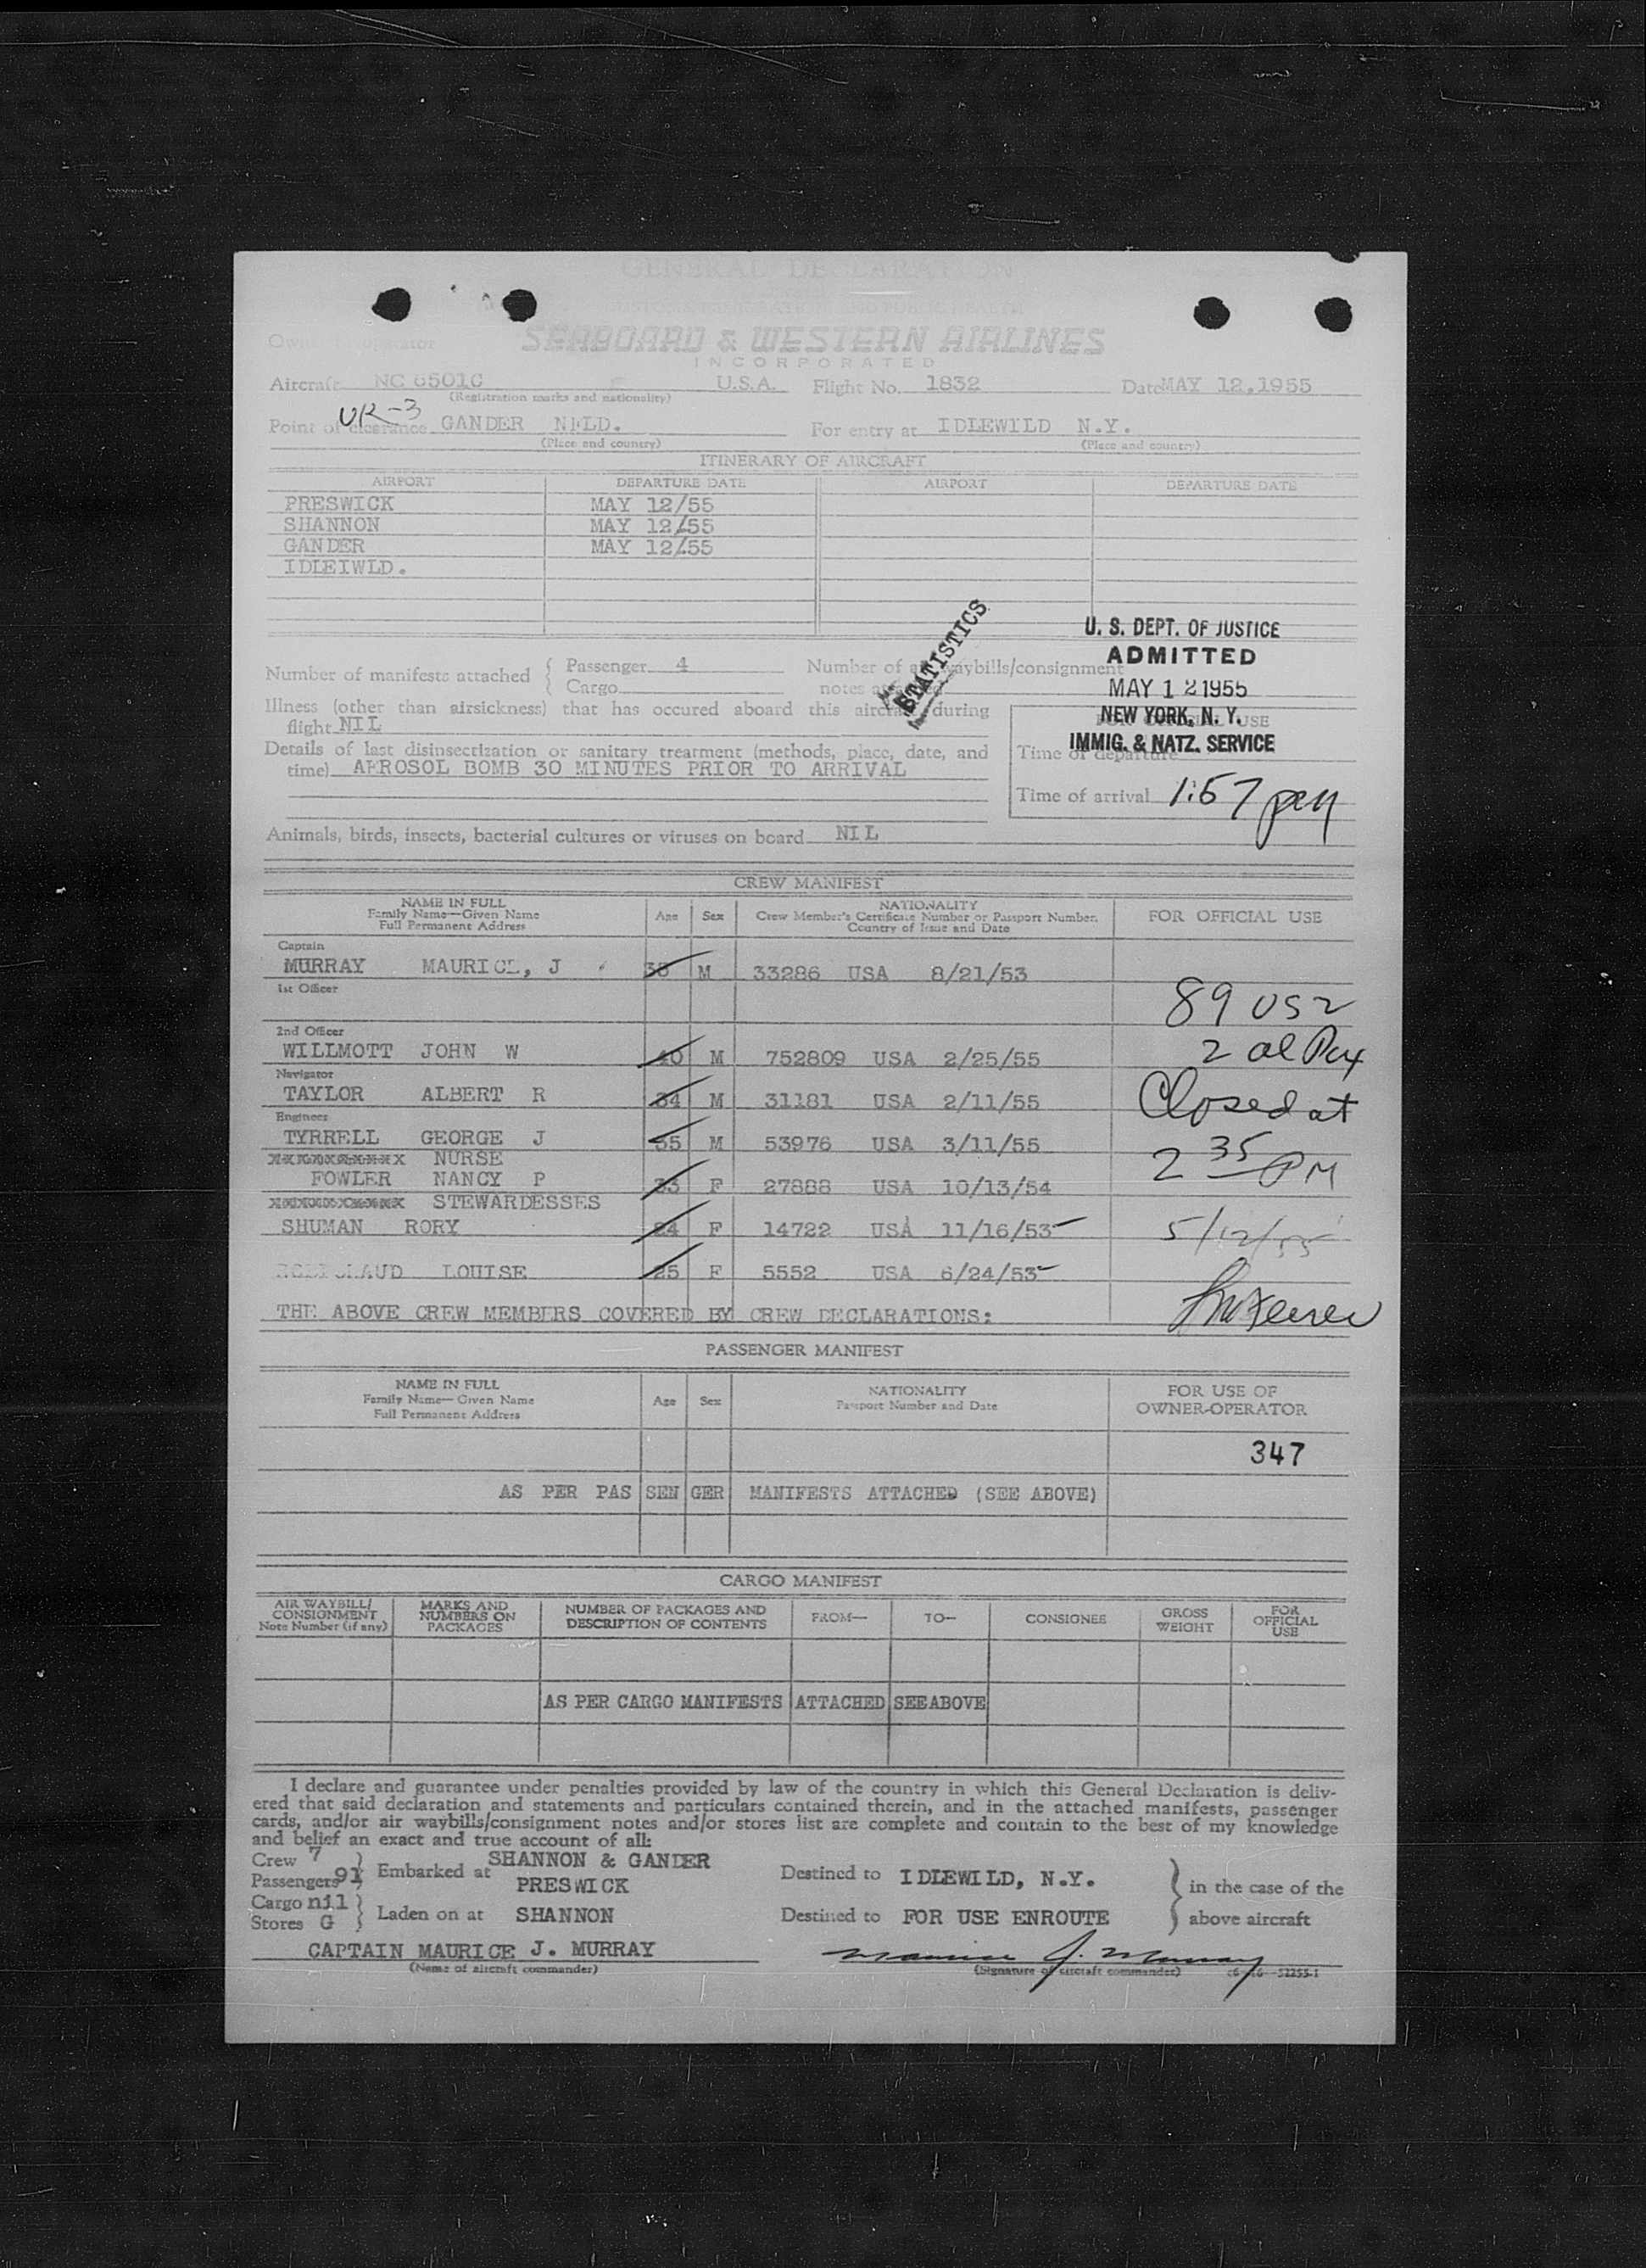 GENERAL DECLARATION
SEABOARD & WESTERN AIRLINES
INCORPORATED
Aircraft U.S.A. Flight No. 1832 Date MAY 12,1955
(Registration marks and nationality)
Point of clearance GANDER NFLD. For entry at IDLEWILD N.Y.
(Place and country) (Place and country)
ITINERARY OF AIRCRAFT
AIRPORT DEPARTURE DATE AIRPORT DEPARTURE DATE
PRESWICK MAY 12/55
SHANNON MAY 12/55
GANDER MAY 12/55
IDLEIWLD.
STATISTICS
U. S. DEPT. OF JUSTICE
ADMITTED
MAY 12 1955
NEW YORK, N. Y.
IMMIG. & NATZ. SERVICE
Number of manifests attached { Passenger 4 Number of air waybills/consignment
Cargo notes
Illness (other than airsickness) that has occured aboard this aircraft during
flight NIL
FOR OFFICIAL USE
Details of last disinsectization or sanitary treatment (methods, place, date, and
time) AEROSOL BOMB 30 MINUTES PRIOR TO ARRIVAL
Time of departure
Time of arrival 1:57 pm
Animals, birds, insects, bacterial cultures or viruses on board NIL
CREW MANIFEST
NAME IN FULL
Family Name—Given Name
Full Permanent Address
Age Sex
NATIONALITY
Crew Member's Certificate Number or Passport Number,
Country of Issue and Date
FOR OFFICIAL USE
Captain
MURRAY MAURICE, J M 33286 USA 8/21/53
1st Officer
89 USZ
2nd Officer
WILLMOTT JOHN W 40 M 752809 USA 2/25/55
2 al Pax
Navigator
TAYLOR ALBERT R 34 M 31181 USA 2/11/55
Closed at
Engineer
TYRRELL GEORGE J 35 M 53976 USA 3/11/55
2 35 PM
NURSE
FOWLER NANCY P 33 F 27888 USA 10/13/54
STEWARDESSES
SHUMAN RORY 24 F 14722 USA 11/16/53
5/12/55
LOUISE 25 F 5552 USA 6/24/53
THE ABOVE CREW MEMBERS COVERED BY CREW DECLARATIONS:
PASSENGER MANIFEST
NAME IN FULL
Family Name—Given Name
Full Permanent Address
Age Sex
NATIONALITY
Passport Number and Date
FOR USE OF
OWNER-OPERATOR
347
AS PER PASSENGER MANIFESTS ATTACHED (SEE ABOVE)
CARGO MANIFEST
AIR WAYBILL/
CONSIGNMENT
Note Number (if any)
MARKS AND
NUMBERS ON
PACKAGES
NUMBER OF PACKAGES AND
DESCRIPTION OF CONTENTS
FROM— TO— CONSIGNEE
GROSS
WEIGHT
FOR
OFFICIAL
USE
AS PER CARGO MANIFESTS ATTACHED SEE ABOVE
I declare and guarantee under penalties provided by law of the country in which this General Declaration is deliv-
ered that said declaration and statements and particulars contained therein, and in the attached manifests, passenger
cards, and/or air waybills/consignment notes and/or stores list are complete and contain to the best of my knowledge
and belief an exact and true account of all:
Crew 7 SHANNON & GANDER
Passengers 91 } Embarked at PRESWICK Destined to IDLEWILD, N.Y. } in the case of the
Cargo nil
Stores G } Laden on at SHANNON Destined to FOR USE ENROUTE above aircraft
CAPTAIN MAURICE J. MURRAY Maurice J. Murray
(Name of aircraft commander) (Signature of aircraft commander)